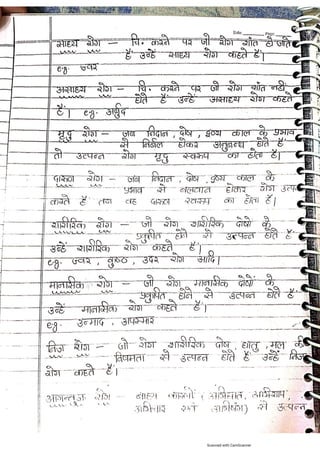 Date
साध्य रोग - चि. करने पर जो रोग शांत हो जाते
हैं उन्हें साध्य रोग कहते हैं।
e.g. ज्वर
असाध्य रोग - चि. करने पर जो रोग शांत नहीं
होते हैं उन्हें असाध्य रोग कहते
हैं। e.g. अर्बुद
मृदु रोग - जब निदान, दोष, दूष्य काल के प्रभाव
से निर्बल होकर अनुबन्ध होते हैं
तो उत्पन्न रोग मृदु स्वरूप का होता है।
दारुण रोग - जब निदान, दोष, दूष्य काल के
प्रभाव से बलवान होकर रोग उत्पन्न
करते हैं तब वह दारुण स्वरूप का होता है।
शारीरिक रोग - जो रोग शारीरिक दोषों के
प्रकुपित होने से उत्पन्न होते हैं
उन्हें शारीरिक रोग कहते हैं।
e.g. ज्वर, कुष्ठ, उदर रोग आदि।
मानसिक रोग - जो रोग मानसिक दोषों के
प्रकुपित होने से उत्पन्न होते हैं
उन्हें मानसिक रोग कहते हैं।
e.g. उन्माद, अपस्मार
निज रोग - जो रोग शारीरिक दोष, धातु, मल की
विषमता से उत्पन्न होते हैं उन्हें निज
रोग कहते हैं।
आगन्तुज रोग - बाह्य कारणों (अभिघात, अभिशाप,
अभिचार एवं अभिषंग) से उत्पन्न
Scanned with CamScanner